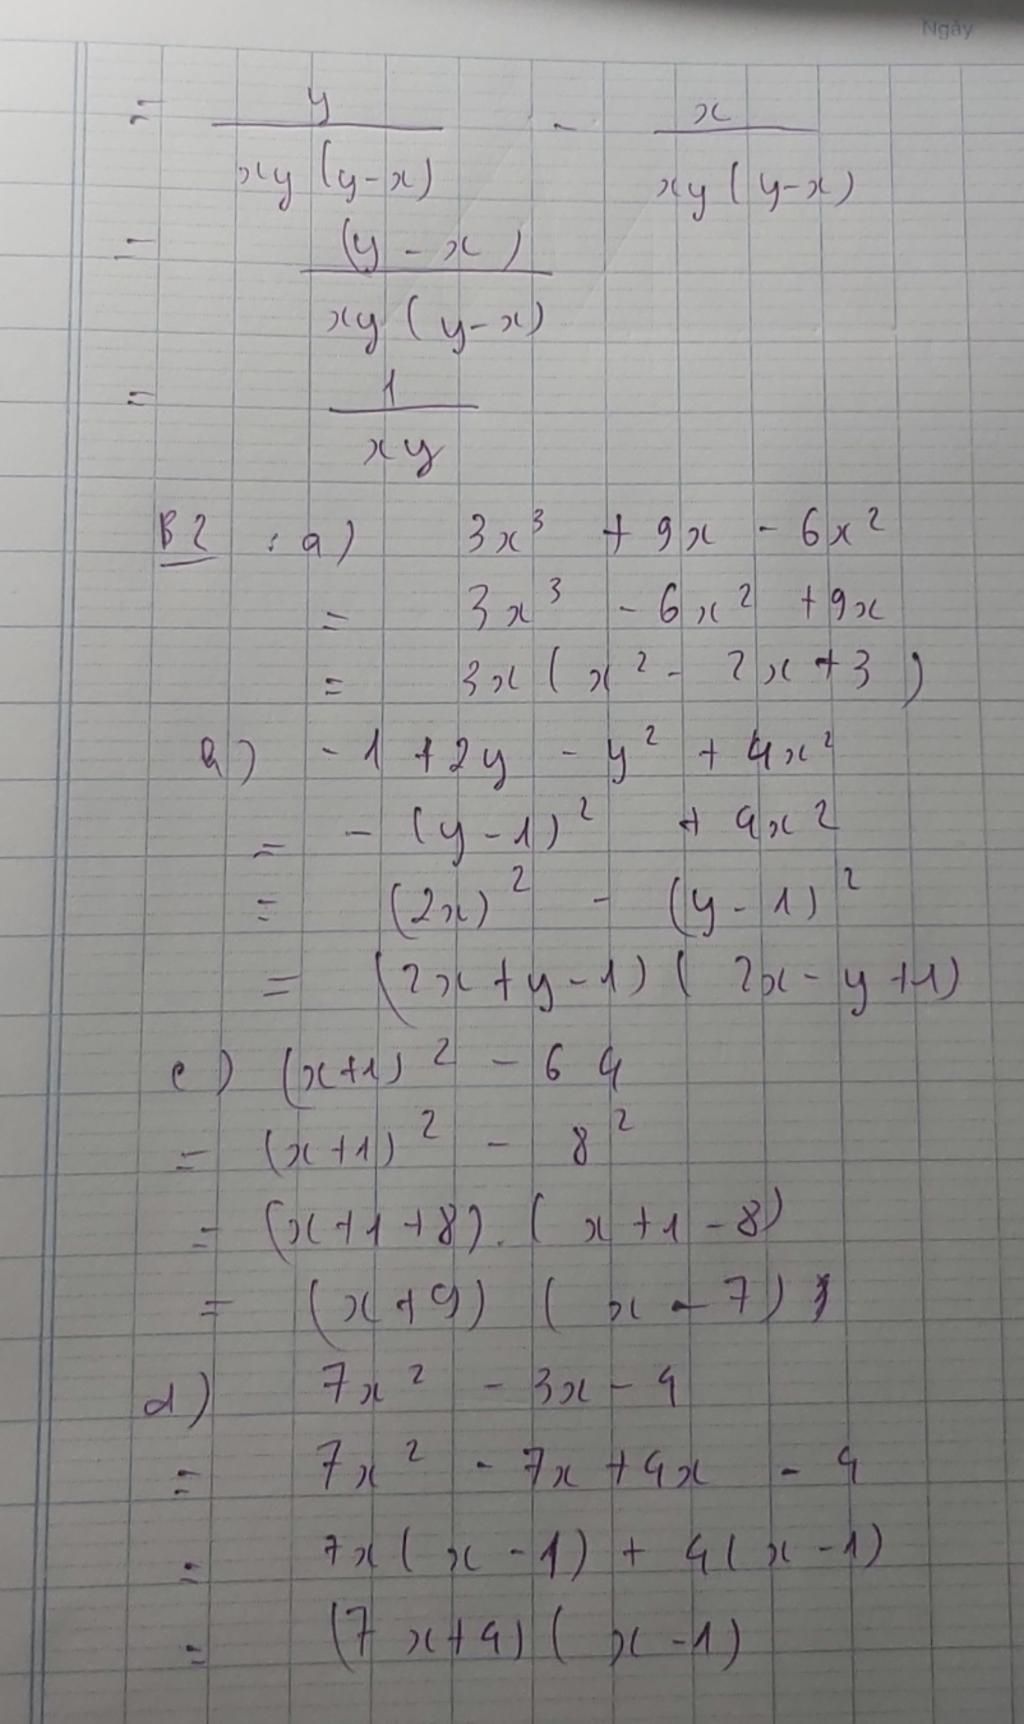 Ngày
= y / xy (y-x) - x / xy (y-x)
= (y - x) / xy (y-x)
= 1 / xy
B2 : a) 3x³ + 9x - 6x²
= 3x³ - 6x² + 9x
= 3x (x² - 2x + 3)
a) - 1 + 2y - y² + 4x²
= - (y - 1)² + 4x²
= (2x)² - (y - 1)²
= (2x + y - 1) (2x - y + 1)
c) (x+1)² - 64
= (x+1)² - 8²
= (x+1+8) . (x+1-8)
= (x+9) (x-7)
d) 7x² - 3x - 4
= 7x² - 7x + 4x - 4
= 7x (x - 1) + 4 (x - 1)
= (7x+4) (x-1)